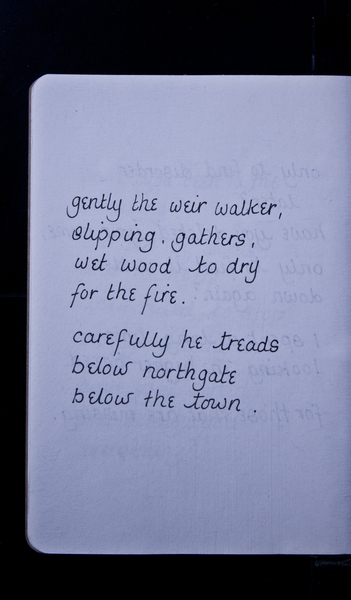 gently the weir walker,
slipping. gathers,
wet wood to dry
for the fire.
carefully he treads
below northgate
below the town.